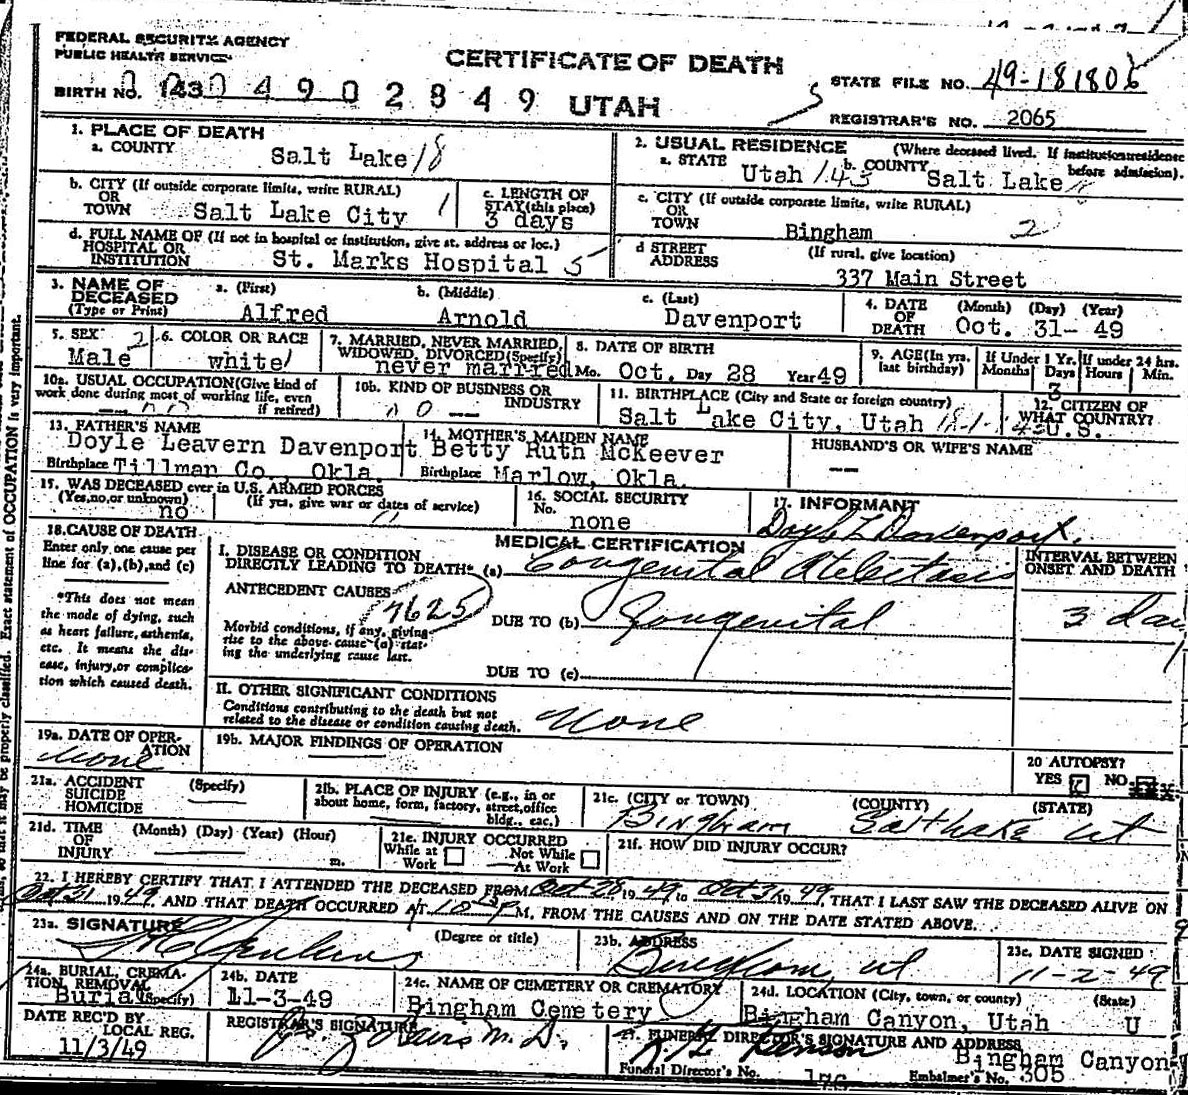 FEDERAL SECURITY AGENCY
PUBLIC HEALTH SERVICE
CERTIFICATE OF DEATH
STATE FILE NO. 49-181806
BIRTH NO. 143 0 4 9 0 2 8 4 9 UTAH
REGISTRAR'S NO. 2065
1. PLACE OF DEATH
a. COUNTY Salt Lake 18
2. USUAL RESIDENCE (Where deceased lived. If institution: residence before admission).
a. STATE Utah 143 b. COUNTY Salt Lake
b. CITY (If outside corporate limits, write RURAL) OR TOWN Salt Lake City 1
c. LENGTH OF STAY (this place) 3 days
c. CITY (If outside corporate limits, write RURAL) OR TOWN Bingham 2
d. FULL NAME OF (If not in hospital or institution, give st. address or loc.) HOSPITAL OR INSTITUTION St. Marks Hospital 5
d STREET ADDRESS (If rural, give location) 337 Main Street
3. NAME OF DECEASED (Type or Print)
a. (First) Alfred
b. (Middle) Arnold
c. (Last) Davenport
4. DATE OF DEATH (Month) (Day) (Year) Oct. 31- 49
5. SEX 2 Male
6. COLOR OR RACE white 1
7. MARRIED, NEVER MARRIED, WIDOWED, DIVORCED (Specify) never married
8. DATE OF BIRTH Mo. Oct. Day 28 Year 49
9. AGE (In yrs. last birthday)
If Under 1 Yr. Months Days 3
If under 24 hrs. Hours Min.
10a. USUAL OCCUPATION (Give kind of work done during most of working life, even if retired)
10b. KIND OF BUSINESS OR INDUSTRY
11. BIRTHPLACE (City and State or foreign country) Salt Lake City, Utah
12. CITIZEN OF WHAT COUNTRY? U.S.
13. FATHER'S NAME
Doyle Leavern Davenport
Birthplace Tillman Co., Okla.
14. MOTHER'S MAIDEN NAME
Betty Ruth McKeever
Birthplace Marlow, Okla.
HUSBAND'S OR WIFE'S NAME
--
15. WAS DECEASED ever in U.S. ARMED FORCES
(Yes, no, or unknown) no (If yes, give war or dates of service)
16. SOCIAL SECURITY No. none
17. INFORMANT
Doyle L Davenport.
18. CAUSE OF DEATH
Enter only one cause per line for (a), (b), and (c)
*This does not mean the mode of dying, such as heart failure, asthenia, etc. It means the disease, injury, or complication which caused death.
MEDICAL CERTIFICATION
INTERVAL BETWEEN ONSET AND DEATH
I. DISEASE OR CONDITION DIRECTLY LEADING TO DEATH* (a) Congenital Atelectasis
ANTECEDENT CAUSES 7625
Morbid conditions, if any, giving rise to the above cause (a) stating the underlying cause last.
DUE TO (b) Congenital
3 Day
DUE TO (c)
II. OTHER SIGNIFICANT CONDITIONS
Conditions contributing to the death but not related to the disease or condition causing death. None
19a. DATE OF OPERATION None
19b. MAJOR FINDINGS OF OPERATION
20 AUTOPSY?
YES NO
21a. ACCIDENT SUICIDE HOMICIDE (Specify)
21b. PLACE OF INJURY (e.g., in or about home, form, factory, street, office bldg., eac.)
21c. (CITY or TOWN) (COUNTY) (STATE)
Bingham Salt Lake Ut
21d. TIME OF INJURY (Month) (Day) (Year) (Hour) m.
21e. INJURY OCCURRED
While at Work Not While At Work
21f. HOW DID INJURY OCCUR?
22. I HEREBY CERTIFY THAT I ATTENDED THE DECEASED FROM Oct 28 1949 to Oct 31 1949, THAT I LAST SAW THE DECEASED ALIVE ON
Oct 31 1949 AND THAT DEATH OCCURRED AT P M, FROM THE CAUSES AND ON THE DATE STATED ABOVE.
23a. SIGNATURE (Degree or title)
23b. ADDRESS
Bingham, Ut
23c. DATE SIGNED
11-2-49
24a. BURIAL, CREMATION, REMOVAL (Specify) Burial
24b. DATE
11-3-49
24c. NAME OF CEMETERY OR CREMATORY
Bingham Cemetery
24d. LOCATION (City, town, or county) (State)
Bingham Canyon, Utah U
DATE REC'D BY LOCAL REG.
11/3/49
REGISTRAR'S SIGNATURE
M.D.
FUNERAL DIRECTOR'S SIGNATURE AND ADDRESS
Bingham Canyon
Funeral Director's No. 176 Embalmer's No. 305